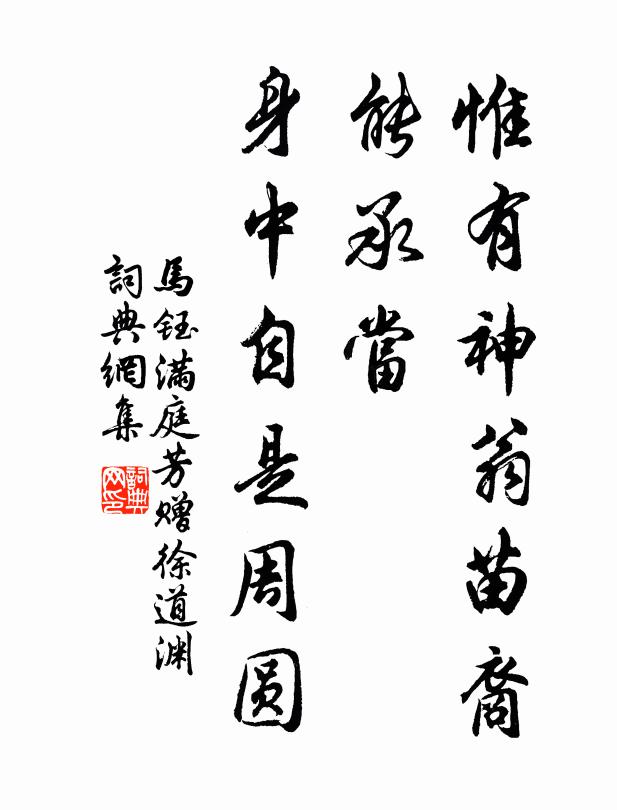 惟有神翁苗裔
能承當
身中自是周圆
馬鈺滿庭芳赠徐道渊
詞典網集
詞典
网印